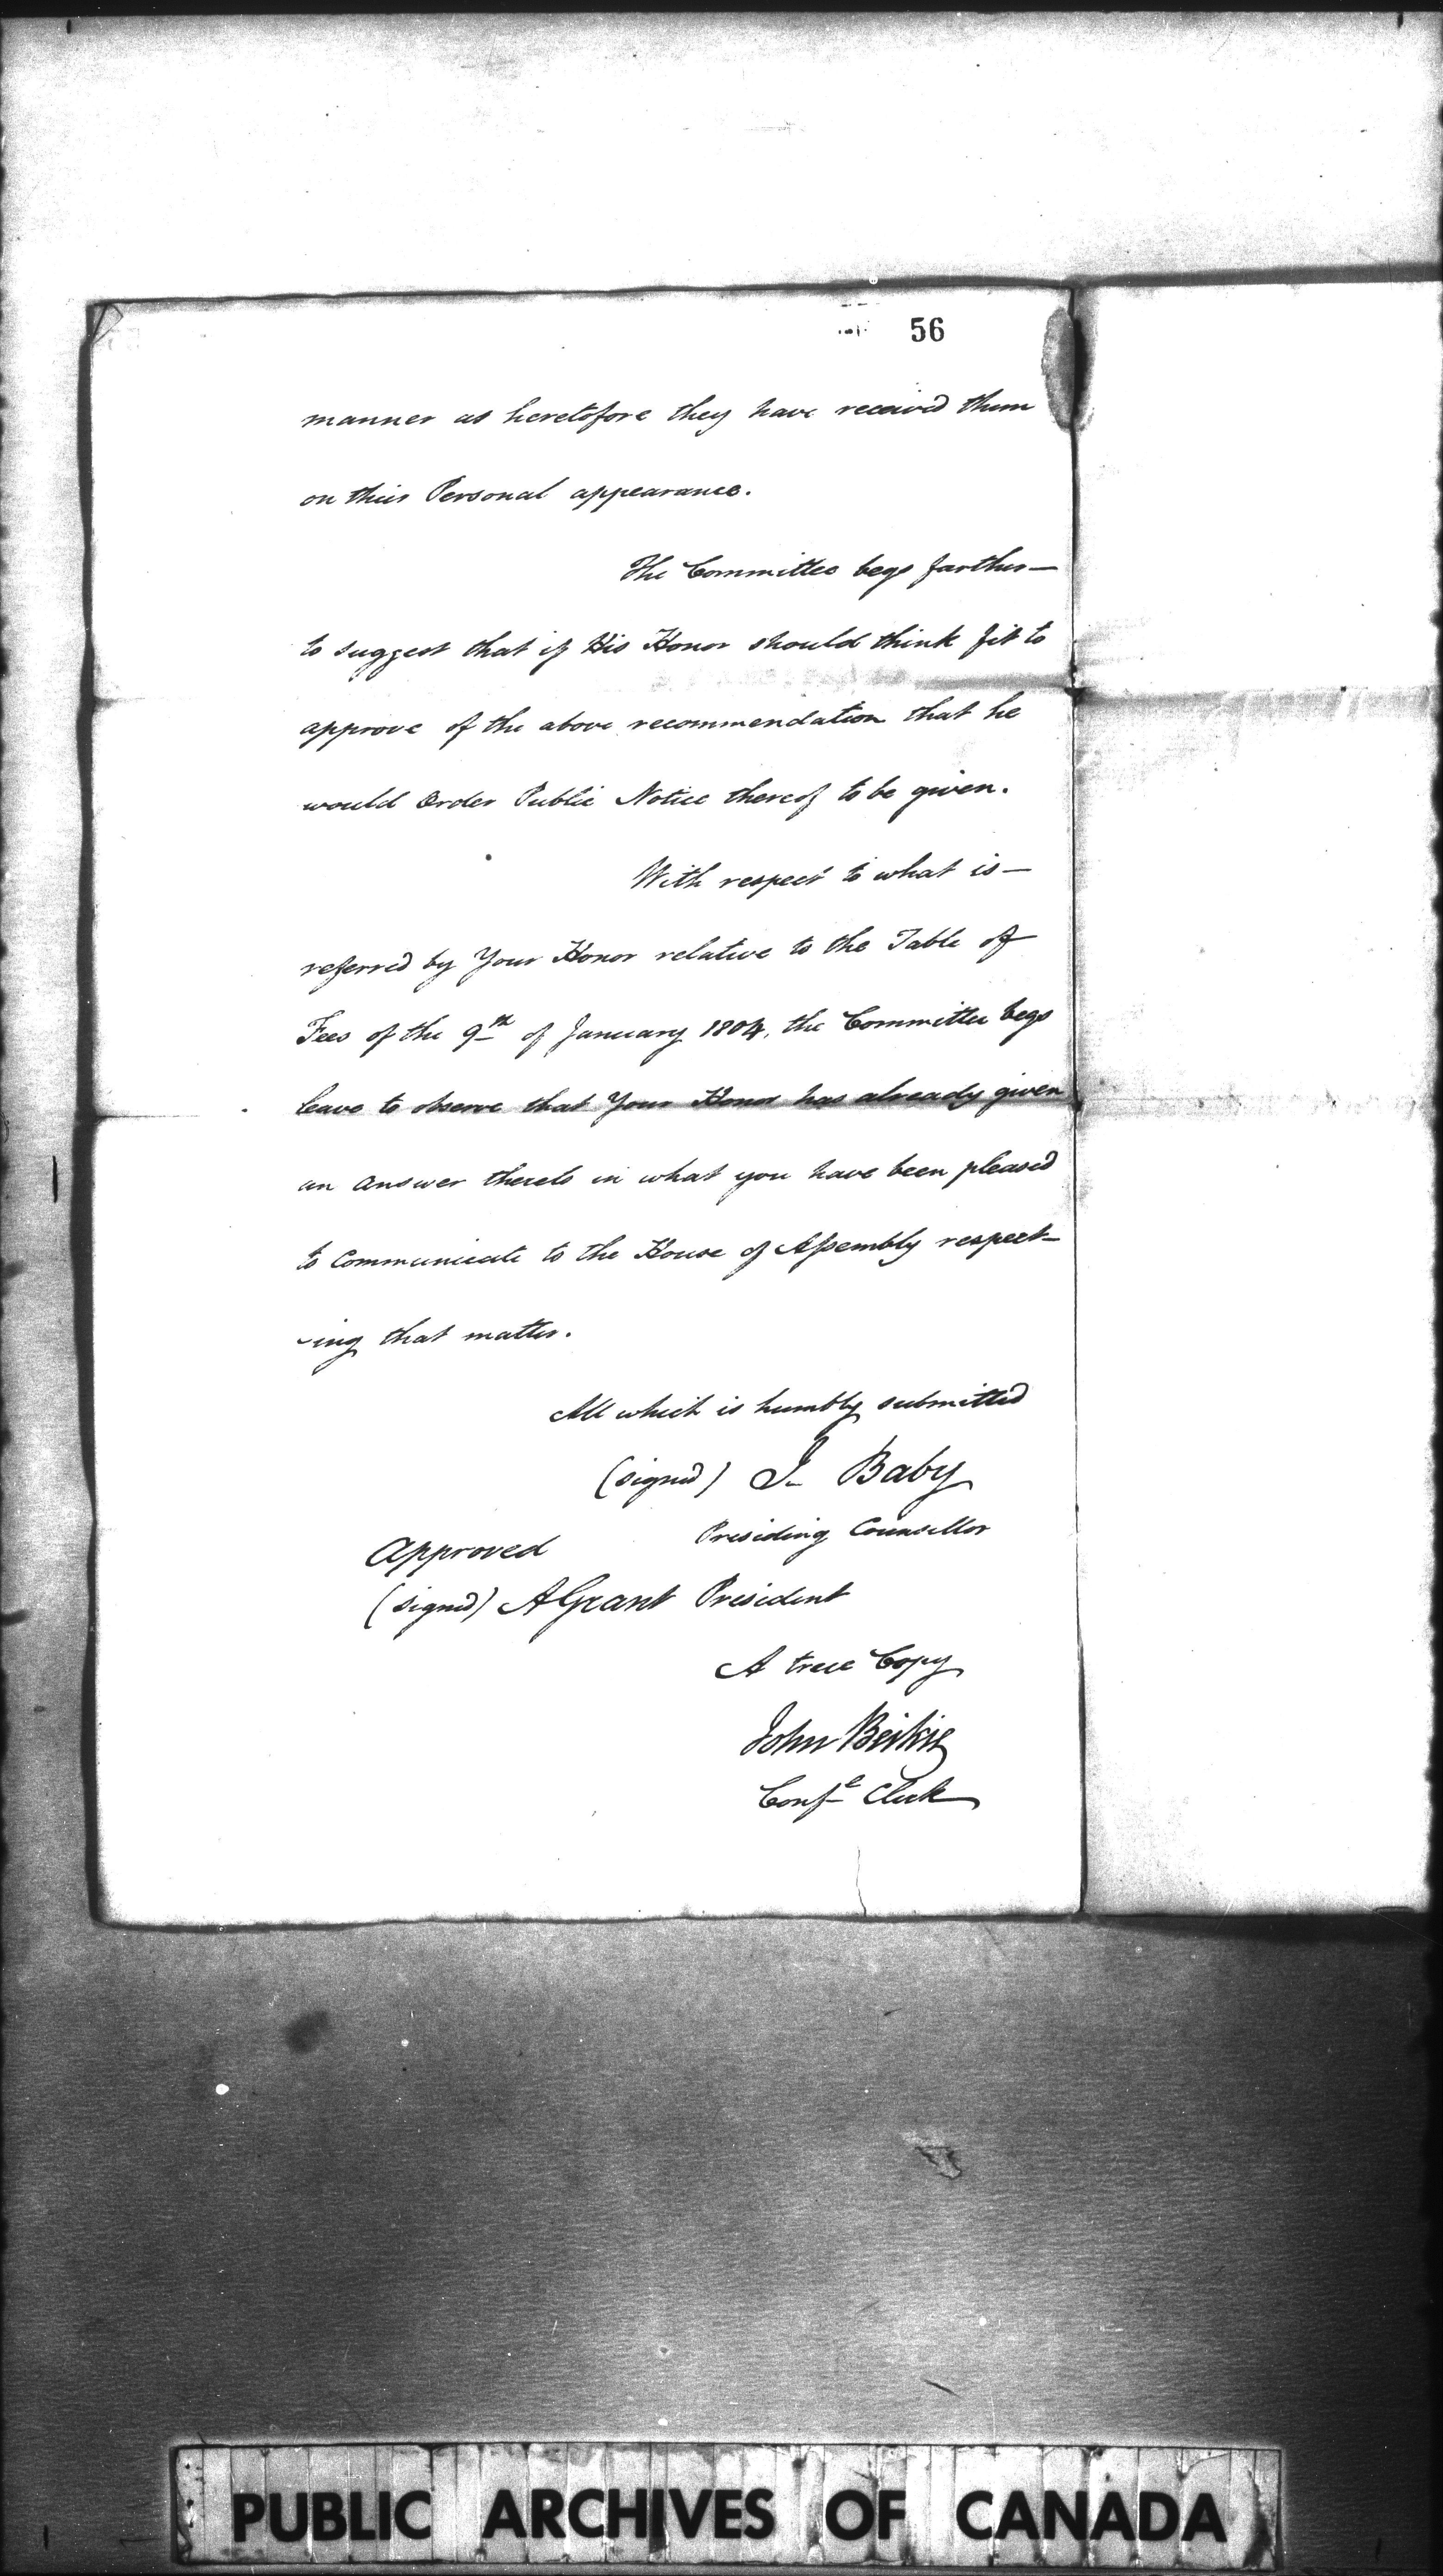 56
manner as heretofore they have received them
on their Personal appearance.
The Committee begs farther—
to suggest that if His Honor should think fit to
approve of the above recommendation that he
would Order Public Notice thereof to be given.
With respect to what is—
referred by Your Honor relative to the Table of
Fees of the 9th of January 1804, the Committee begs
leave to observe that Your Honor has already given
an answer thereto in what you have been pleased
to Communicate to the House of Assembly respect-
-ing that matter.
All which is humbly submitted
(signed) J Baby
Presiding Counsellor
Approved
(signed) A Grant President
A true Copy
John Beikie
Confl Clerk
PUBLIC ARCHIVES OF CANADA